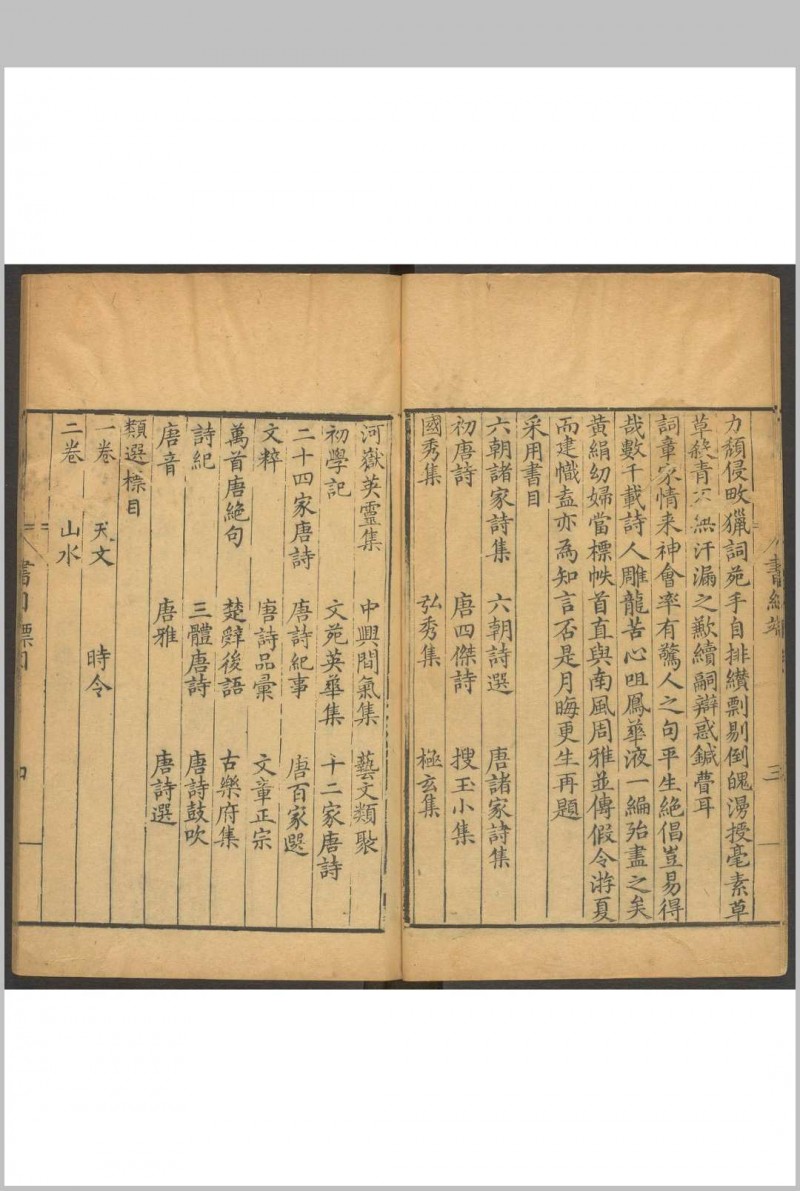 力頹侵畋獵詞苑手自排纘剽剔倒媿湯授毫素草
草殺青不無汗漏之歉續嗣辯惑鍼瞢耳
詞章家情来神會率有驚人之句平生絶倡豈易得
哉數千載詩人雕龍苦心咀鳳華液一編殆盡之矣
黃絹幼婦當標帙首直與南風周雅並傳假令游夏
而建幟壼亦為知言否是月晦更生再題
采用書目
六朝諸家詩集　六朝詩選　唐諸家詩集
初唐詩　唐四傑詩　搜玉小集
國秀集　弘秀集　極玄集
河嶽英靈集　中興間氣集　藝文類聚
初學記　文苑英華集　十二家唐詩
二十四家唐詩　唐詩紀事　唐百家選
文粹　唐詩品彙　文章正宗
萬首唐絶句　楚辭後語　古樂府集
詩紀　三體唐詩　唐詩鼓吹
唐音　唐雅　唐詩選
類選標目
一卷　天文　時令
二卷　山水